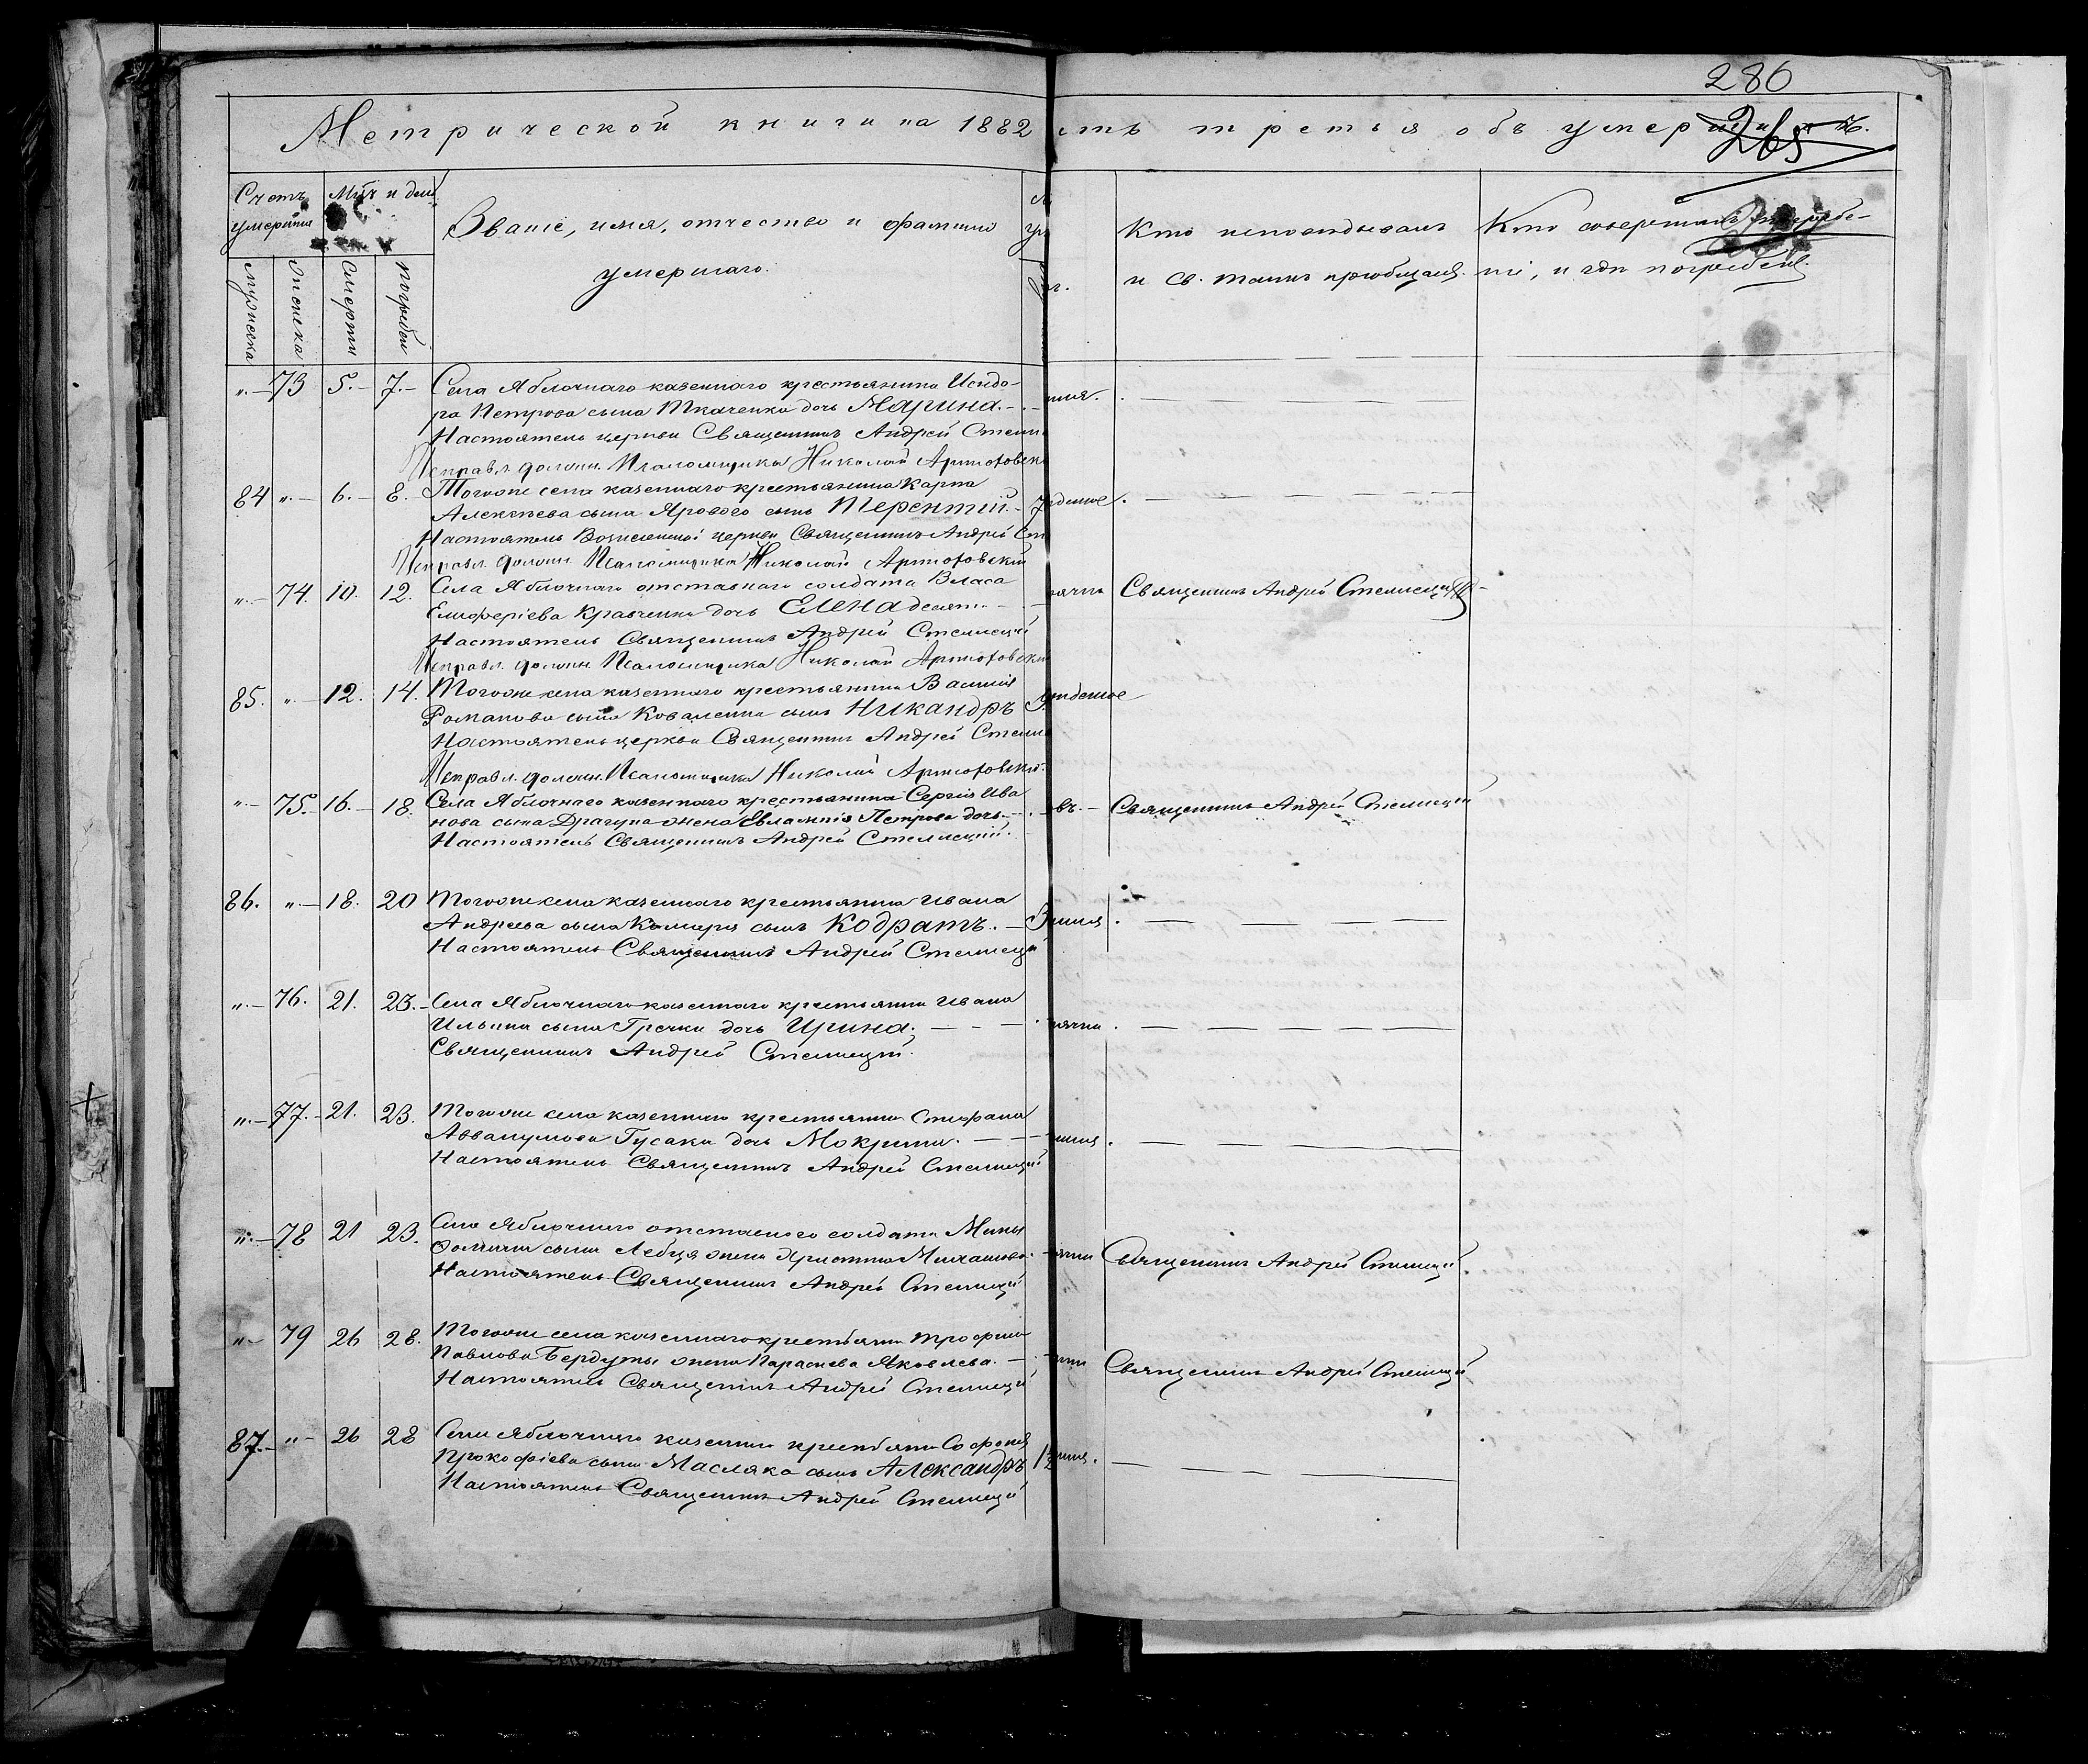 286
265
Метрической книги на 1882 сть третья объ умер
Счетъ умершихъ
Мцъ и день
мужеска
женска
смерти
погребен
Званіе, имя, отчество и фамилія
умершаго.
Кто исповѣдывалъ
и св. таинъ пріобщалъ.
Кто совершалъ погребе-
ніе, и гдѣ погребены.
".— 73 5.— 7.— Села Яблочнаго казеннаго крестьянина Исидо-
ра Петрова сына Ткаченка дочь Марина.
Настоятель церкви Священникъ Андрей
Исправл. должн. Псаломщика Николай
84 ".— 6.— 8.— Тогоже села казеннаго крестьянина Карпа
Алексѣева сына Ярового сынъ Терентій.
Настоятель Вознесенской церкви Священникъ Андрей
Исправл. должн. Псаломщика Николай Артюховскій
".— 74. 10. 12. Села Яблочнаго отставнаго солдата Власа
Елиферіева Кравченка дочь Елена Священникъ Андрей Стеллецкій
Настоятель Священникъ Андрей Стеллецкій
Исправл. должн. Псаломщика Николай Артюховскій
85. ".— 12. 14. Тогоже села казеннаго крестьянина Василія
Романова сына Коваленка сынъ Никандръ
Настоятель церкви Священникъ Андрей
Исправл. должн. Псаломщика Николай Артюховскій.
".— 75. 16.— 18. Села Яблочнаго казеннаго крестьянина Сергія Ива
нова сына Драгуна жена Евлампія Петрова дочь.— Священникъ Андрей Стеллецкій
Настоятель Священникъ Андрей Стеллецкій.
86. ".— 18. 20 Тогоже села казеннаго крестьянина Ивана
Андреева сына сынъ Кодратъ.—
Настоятель Священникъ Андрей Стеллецкій
".— 76. 21. 23.— Села Яблочнаго казеннаго крестьянина Ивана
Ильина сына Гречки дочь Ирина.
Священникъ Андрей Стеллецкій.
".— 77.— 21. 23. Тогоже села казеннаго крестьянина Стефана
Аввакумова Гусака дочь Мокрина.
Настоятель Священникъ Андрей Стеллецкій
".— 78 21 23. Села Яблочнаго отставного солдата Мины
Фомина сына жена Христина Михаилова. Священникъ Андрей Стеллецкій.
Настоятель Священникъ Андрей Стеллецкій
".— 79 26 28. Тогоже села казеннаго крестьянина Трофима
Павлова Бердуты жена Параскева Яковлева.— Священникъ Андрей Стеллецкій
Настоятель Священникъ Андрей Стеллецкій
87.— ".— 26 28 Села Яблочнаго казеннаго крестьянина Софонія
Прокофіева сына Масляка сынъ Александръ
Настоятель Священникъ Андрей Стеллецкій